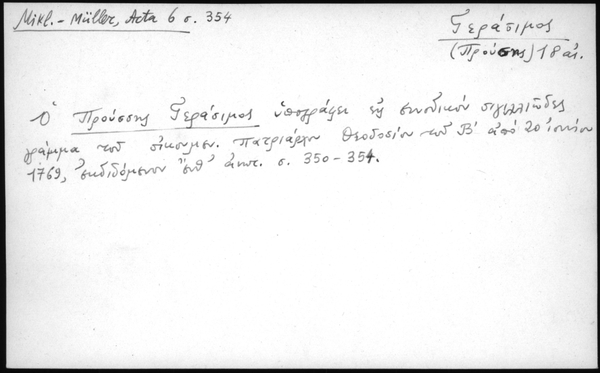 Mikl.-Müller, Acta 6 σ. 354
Γεράσιμος
(Προύσης) 18 αἰ.
Ὁ Προύσσης Γεράσιμος ὑπογράφει εἰς συνοδικόν σιγιλλιῶδες
γράμμα τοῦ οἰκουμεν. Πατριάρχου Θεοδοσίου τοῦ Β' ἀπό 20 ἰουνίου
1769, ἐκδιδόμενον ἔνθ' ἀνωτ. σ. 350-354.